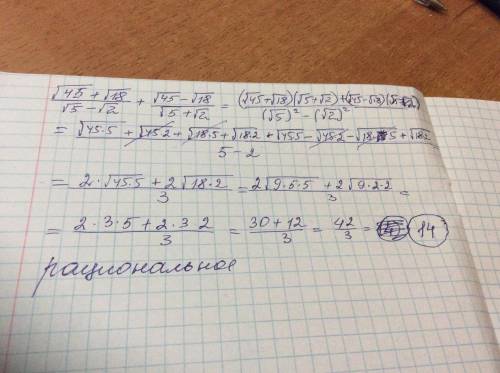 (√45 + √18)/(√5 − √2) + (√45 − √18)/(√5 + √2) = ((√45+√18)(√5+√2)+(√45−√18)(√5−√2))/((√5)² − (√2)²)
= (√45·5 + √45·2 + √18·5 + √18·2 + √45·5 − √45·2 − √18·5 + √18·2)/(5 − 2)
= (2·√45·5 + 2√18·2)/3 = (2√9·5·5 + 2√9·2·2)/3 =
= (2·3·5 + 2·3·2)/3 = (30 + 12)/3 = 42/3 = 14
рациональное